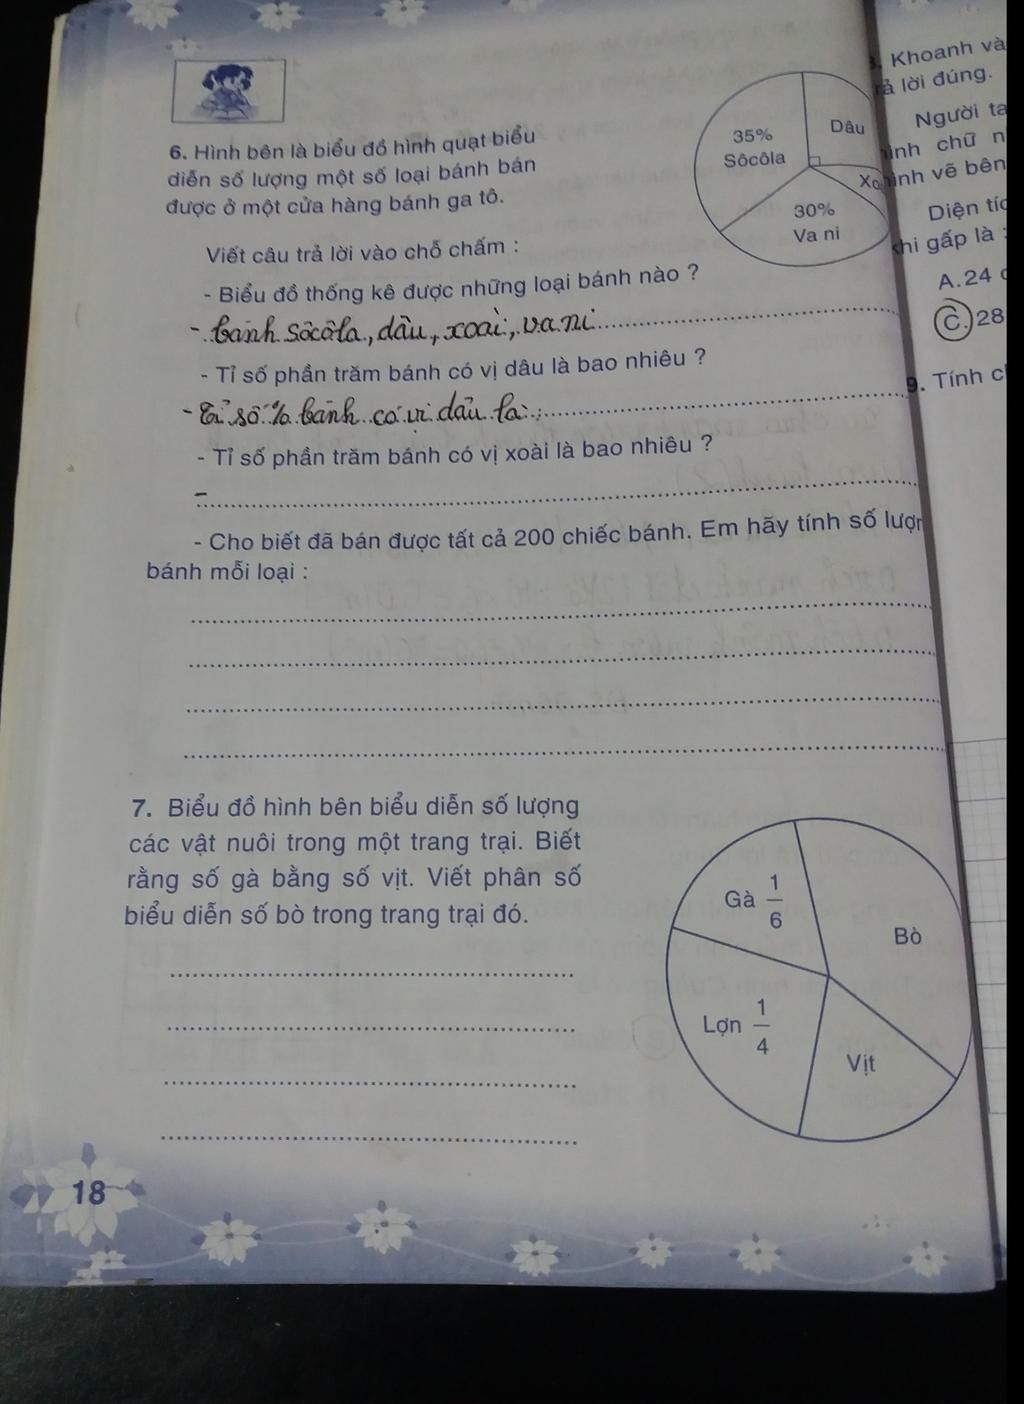 6. Hình bên là biểu đồ hình quạt biểu
diễn số lượng một số loại bánh bán
được ở một cửa hàng bánh ga tô.
35%
Sôcôla
Dâu
30%
Va ni
Viết câu trả lời vào chỗ chấm :
- Biểu đồ thống kê được những loại bánh nào ?
- bánh sôcôla, dâu, xoài, va ni
- Tỉ số phần trăm bánh có vị dâu là bao nhiêu ?
- Tỉ số % bánh có vị dâu là :
- Tỉ số phần trăm bánh có vị xoài là bao nhiêu ?
-
- Cho biết đã bán được tất cả 200 chiếc bánh. Em hãy tính số lượn
bánh mỗi loại :
7. Biểu đồ hình bên biểu diễn số lượng
các vật nuôi trong một trang trại. Biết
rằng số gà bằng số vịt. Viết phân số
biểu diễn số bò trong trang trại đó.
Gà 1/6
Bò
Lợn 1/4
Vịt
18
Khoanh và
lời đúng.
Người ta
chữ n
vẽ bên
Diện tíc
gấp là :
A. 24
C. 28
9. Tính